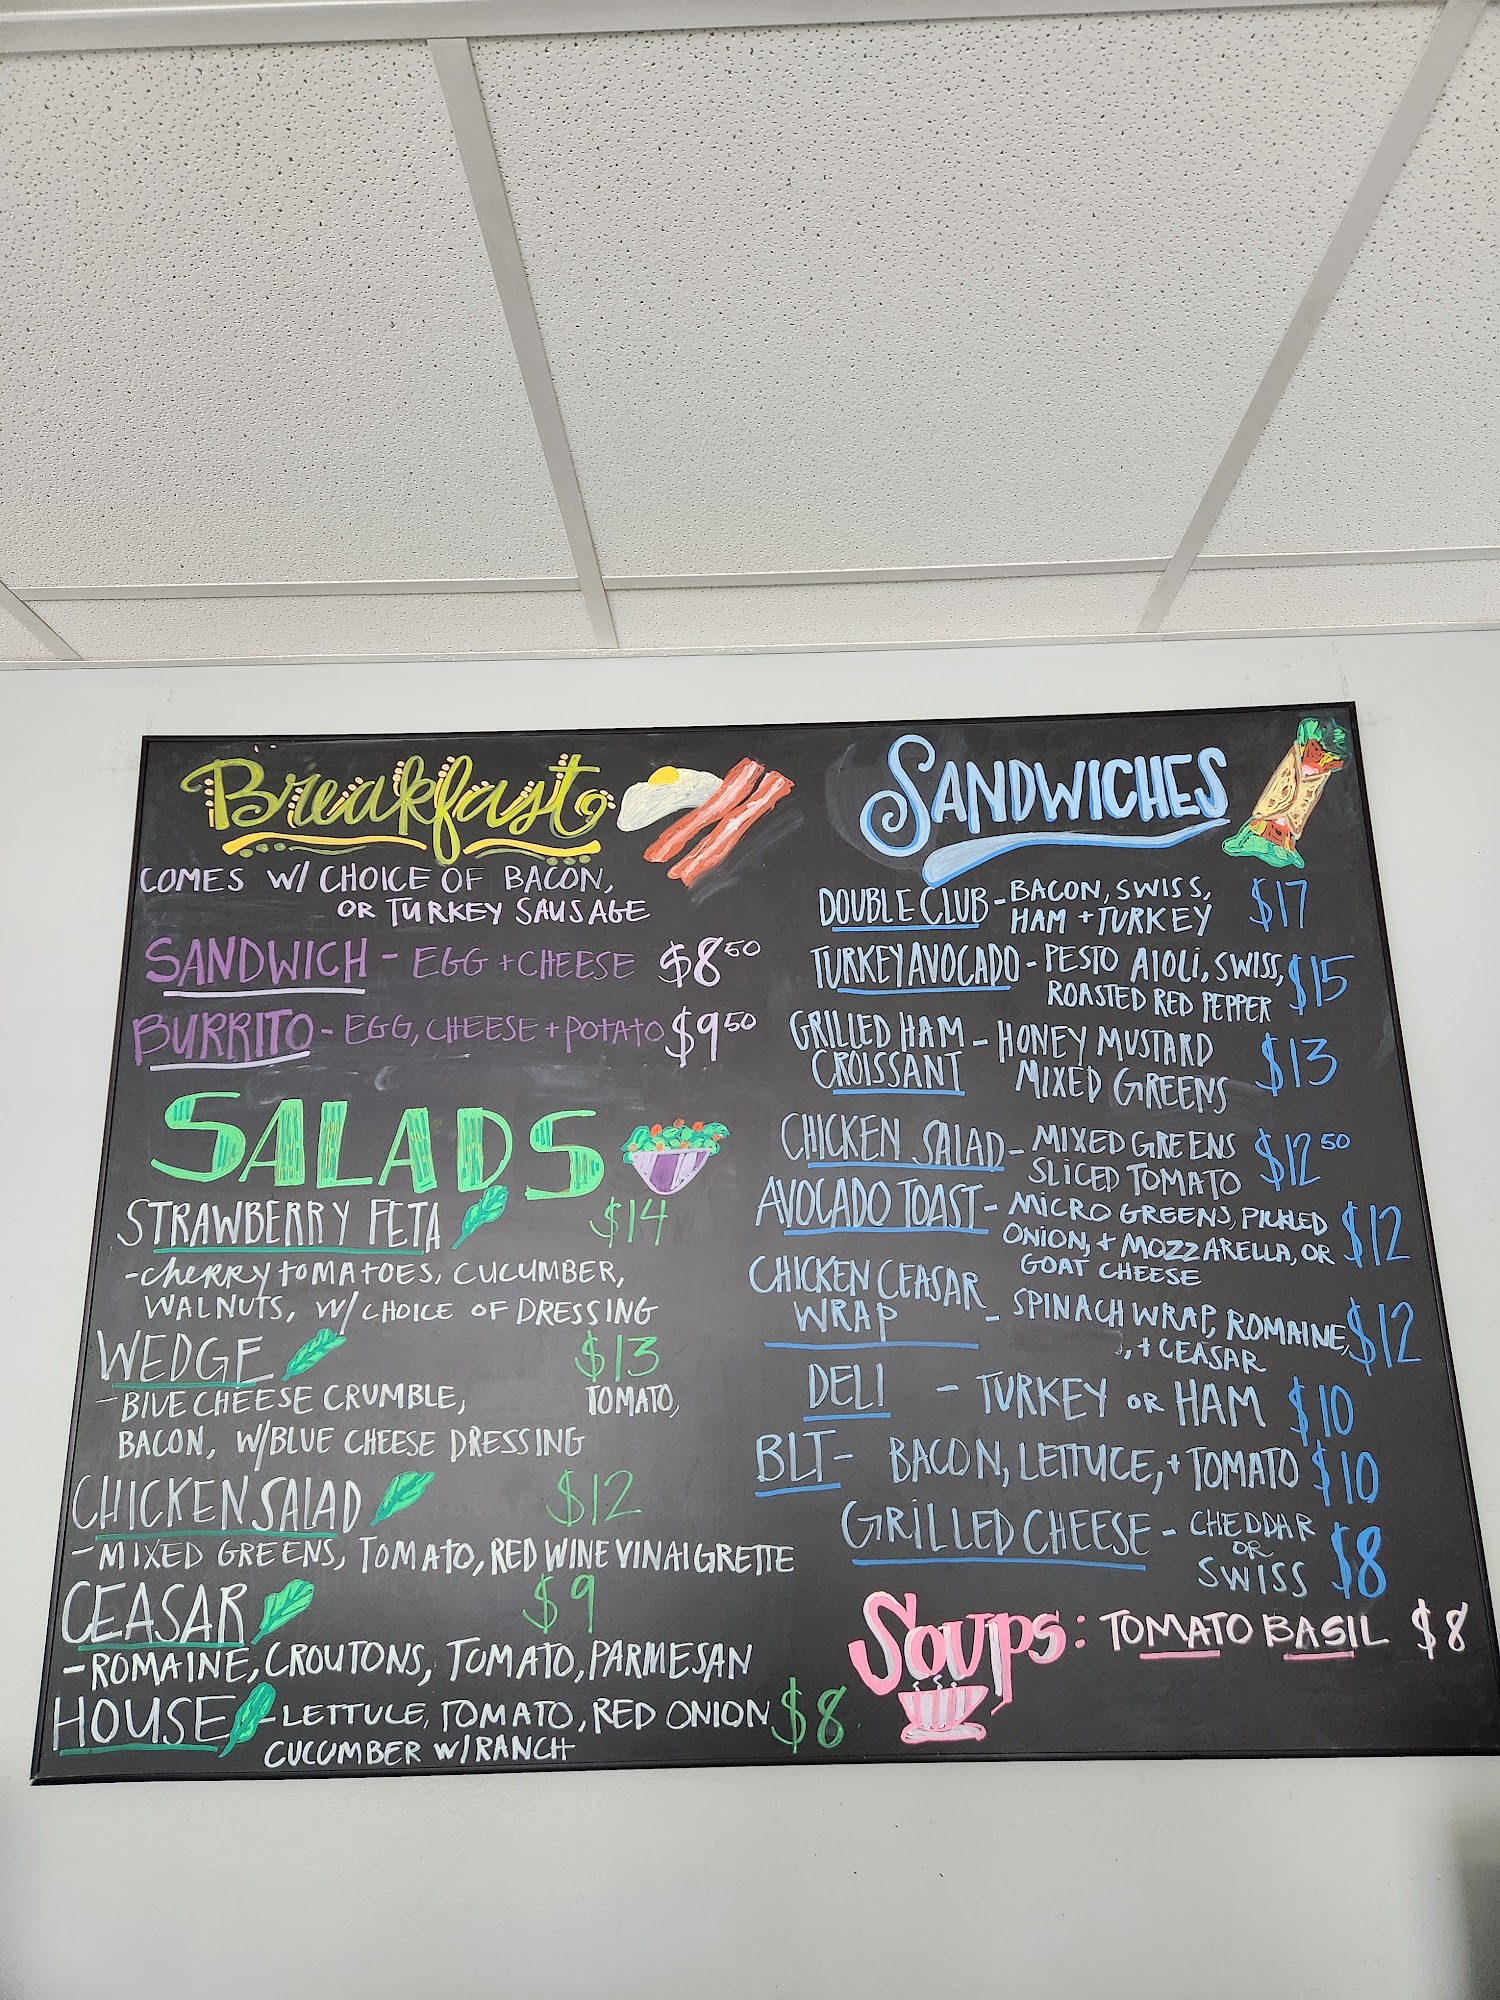 Breakfast
COMES W/ CHOICE OF BACON,
OR TURKEY SAUSAGE
SANDWICH - EGG + CHEESE $8 50
BURRITO - EGG, CHEESE + POTATO $9 50
SALADS
STRAWBERRY FETA $14
- CHERRY TOMATOES, CUCUMBER,
WALNUTS, W/ CHOICE OF DRESSING
WEDGE $13
- BLUE CHEESE CRUMBLE, TOMATO,
BACON, W/BLUE CHEESE DRESSING
CHICKEN SALAD $12
- MIXED GREENS, TOMATO, RED WINE VINAIGRETTE
CEASAR $9
- ROMAINE, CROUTONS, TOMATO, PARMESAN
HOUSE - LETTUCE, TOMATO, RED ONION $8
CUCUMBER W/RANCH
SANDWICHES
DOUBLE CLUB - BACON, SWISS, $17
HAM + TURKEY
TURKEY AVOCADO - PESTO AIOLI, SWISS, $15
ROASTED RED PEPPER
GRILLED HAM - HONEY MUSTARD $13
CROISSANT MIXED GREENS
CHICKEN SALAD - MIXED GREENS $12 50
SLICED TOMATO
AVOCADO TOAST - MICRO GREENS, PICKLED $12
ONION, + MOZZARELLA, OR
GOAT CHEESE
CHICKEN CEASAR - SPINACH WRAP, ROMAINE, $12
WRAP , + CEASAR
DELI - TURKEY OR HAM $10
BLT - BACON, LETTUCE, + TOMATO $10
GRILLED CHEESE - CHEDDAR $8
OR
SWISS
Soups: TOMATO BASIL $8